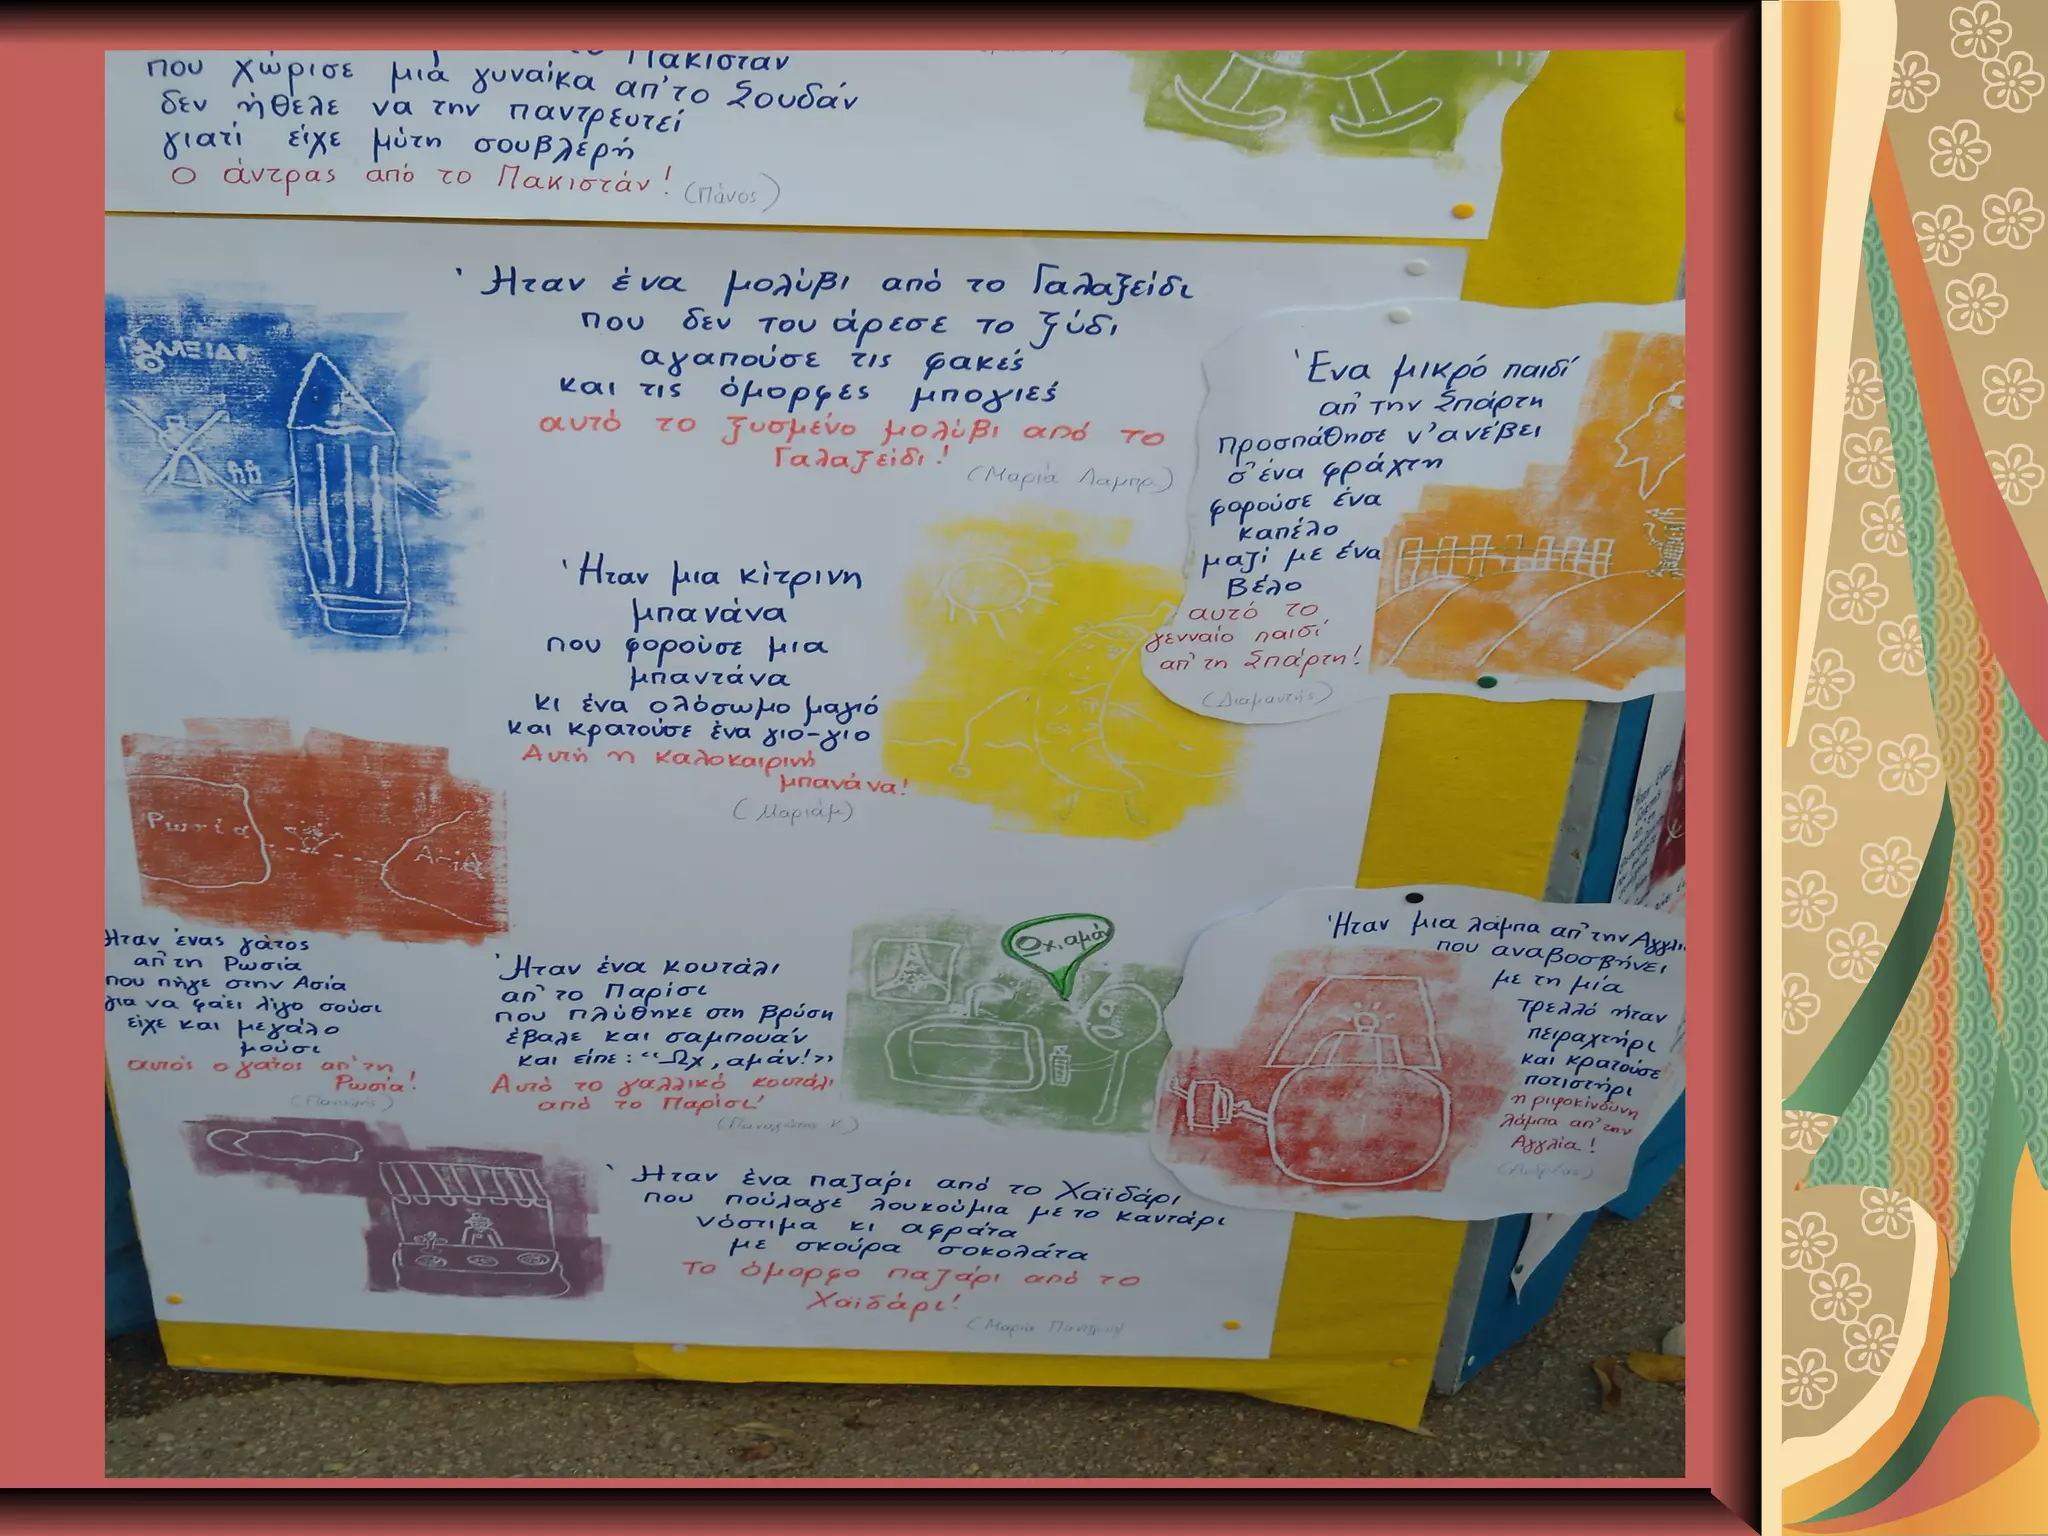 Πακιστάν
που χώρισε μιά γυναίκα απ'το Σουδάν
δεν ήθελε να την παντρευτεί
γιατί είχε μύτη σουβλερή
ο άντρας από το Πακιστάν!
(Πάνος)
Ήταν ένα μολύβι από το Γαλαξείδι
που δεν του άρεσε το ξύδι
αγαπούσε τις φακές
και τις όμορφες μπογιές
αυτό το ξυσμένο μολύβι από το
Γαλαξείδι!
(Μαρία Λαμπρ)
Ένα μικρό παιδί
απ' την Σπάρτη
προσπάθησε ν'ανέβει
σ'ένα φράχτη
φορούσε ένα
καπέλο
μαζί με ένα
βέλο
αυτό το
γενναίο παιδί
απ' τη Σπάρτη!
(Διαμαντής)
Ήταν μια κίτρινη
μπανάνα
που φορούσε μια
μπαντάνα
κι ένα ολόσωμο μαγιό
και κρατούσε ένα γιο-γιο
Αυτή η καλοκαιρινή
μπανάνα!
(Μαριάμ)
Ρωσία
Ασία
Ήταν ένας γάτος
απ' τη Ρωσία
που πήγε στην Ασία
για να φάει λίγο σούσι
είχε και μεγάλο
μούσι
αυτός ο γάτος απ' τη
Ρωσία!
Ήταν ένα κουτάλι
απ' το Παρίσι
που πλύθηκε στη βρύση
έβαλε και σαμπουάν
και είπε: "Ωχ, αμάν!"
Αυτό το γαλλικό κουτάλι
από το Παρίσι!
Ωχ, αμάν
Ήταν μια λάμπα απ' την Αγγλί
που αναβοσβήνει
με τη μία
τρελλό ήταν
πειραχτήρι
και κρατούσε
ποτιστήρι
η ριψοκίνδυνη
λάμπα απ' την
Αγγλία!
Ήταν ένα παζάρι από το Χαϊδάρι
που πούλαγε λουκούμια με το καντάρι
νόστιμα κι αφράτα
με σκούρα σοκολάτα
Το όμορφο παζάρι από το
Χαϊδάρι!